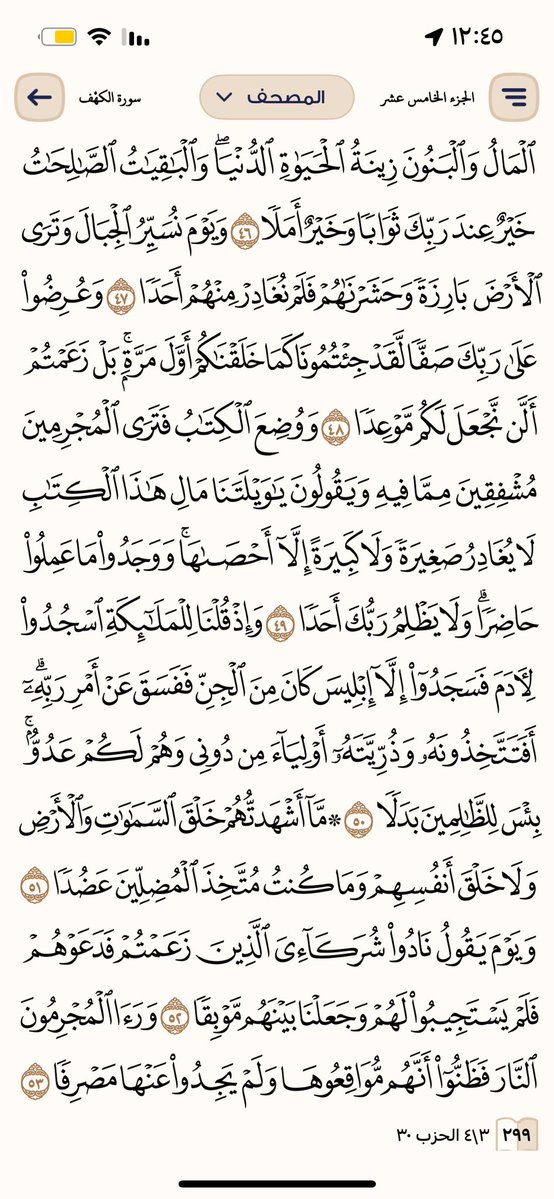 ١٢:٤٥
الجزء الخامس عشر
المصحف
سورة الكهف
ٱلْمَالُ وَٱلْبَنُونَ زِينَةُ ٱلْحَيَوٰةِ ٱلدُّنْيَاۖ وَٱلْبَٰقِيَٰتُ ٱلصَّٰلِحَٰتُ
خَيْرٌ عِندَ رَبِّكَ ثَوَابًا وَخَيْرٌ أَمَلًا ٤٦ وَيَوْمَ نُسَيِّرُ ٱلْجِبَالَ وَتَرَى
ٱلْأَرْضَ بَارِزَةً وَحَشَرْنَٰهُمْ فَلَمْ نُغَادِرْ مِنْهُمْ أَحَدًا ٤٧ وَعُرِضُوا۟
عَلَىٰ رَبِّكَ صَفًّا لَّقَدْ جِئْتُمُونَا كَمَا خَلَقْنَٰكُمْ أَوَّلَ مَرَّةٍۭۚ بَلْ زَعَمْتُمْ
أَلَّن نَّجْعَلَ لَكُم مَّوْعِدًا ٤٨ وَوُضِعَ ٱلْكِتَٰبُ فَتَرَى ٱلْمُجْرِمِينَ
مُشْفِقِينَ مِمَّا فِيهِ وَيَقُولُونَ يَٰوَيْلَتَنَا مَالِ هَٰذَا ٱلْكِتَٰبِ
لَا يُغَادِرُ صَغِيرَةً وَلَا كَبِيرَةً إِلَّآ أَحْصَىٰهَاۚ وَوَجَدُوا۟ مَا عَمِلُوا۟
حَاضِرًاۗ وَلَا يَظْلِمُ رَبُّكَ أَحَدًا ٤٩ وَإِذْ قُلْنَا لِلْمَلَٰٓئِكَةِ ٱسْجُدُوا۟
لِءَادَمَ فَسَجَدُوٓا۟ إِلَّآ إِبْلِيسَ كَانَ مِنَ ٱلْجِنِّ فَفَسَقَ عَنْ أَمْرِ رَبِّهِۦٓۗ
أَفَتَتَّخِذُونَهُۥ وَذُرِّيَّتَهُۥٓ أَوْلِيَآءَ مِن دُونِى وَهُمْ لَكُمْ عَدُوٌّۢۚ
بِئْسَ لِلظَّٰلِمِينَ بَدَلًا ٥٠ ۞مَّآ أَشْهَدتُّهُمْ خَلْقَ ٱلسَّمَٰوَٰتِ وَٱلْأَرْضِ
وَلَا خَلْقَ أَنفُسِهِمْ وَمَا كُنتُ مُتَّخِذَ ٱلْمُضِلِّينَ عَضُدًا ٥١
وَيَوْمَ يَقُولُ نَادُوا۟ شُرَكَآءِىَ ٱلَّذِينَ زَعَمْتُمْ فَدَعَوْهُمْ
فَلَمْ يَسْتَجِيبُوا۟ لَهُمْ وَجَعَلْنَا بَيْنَهُم مَّوْبِقًا ٥٢ وَرَءَا ٱلْمُجْرِمُونَ
ٱلنَّارَ فَظَنُّوٓا۟ أَنَّهُم مُّوَاقِعُوهَا وَلَمْ يَجِدُوا۟ عَنْهَا مَصْرِفًا ٥٣
٢٩٩
٣\٤ الحزب ٣٠